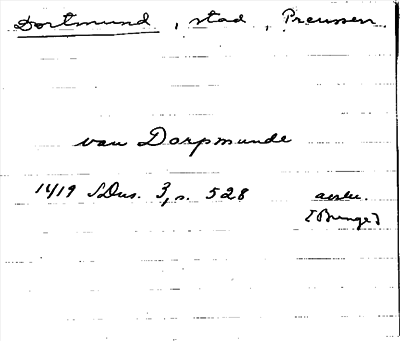 Dortmund, stad, Preussen.
van Dorpmunde
1419 SDns. 3, s. 528
[Bunge]